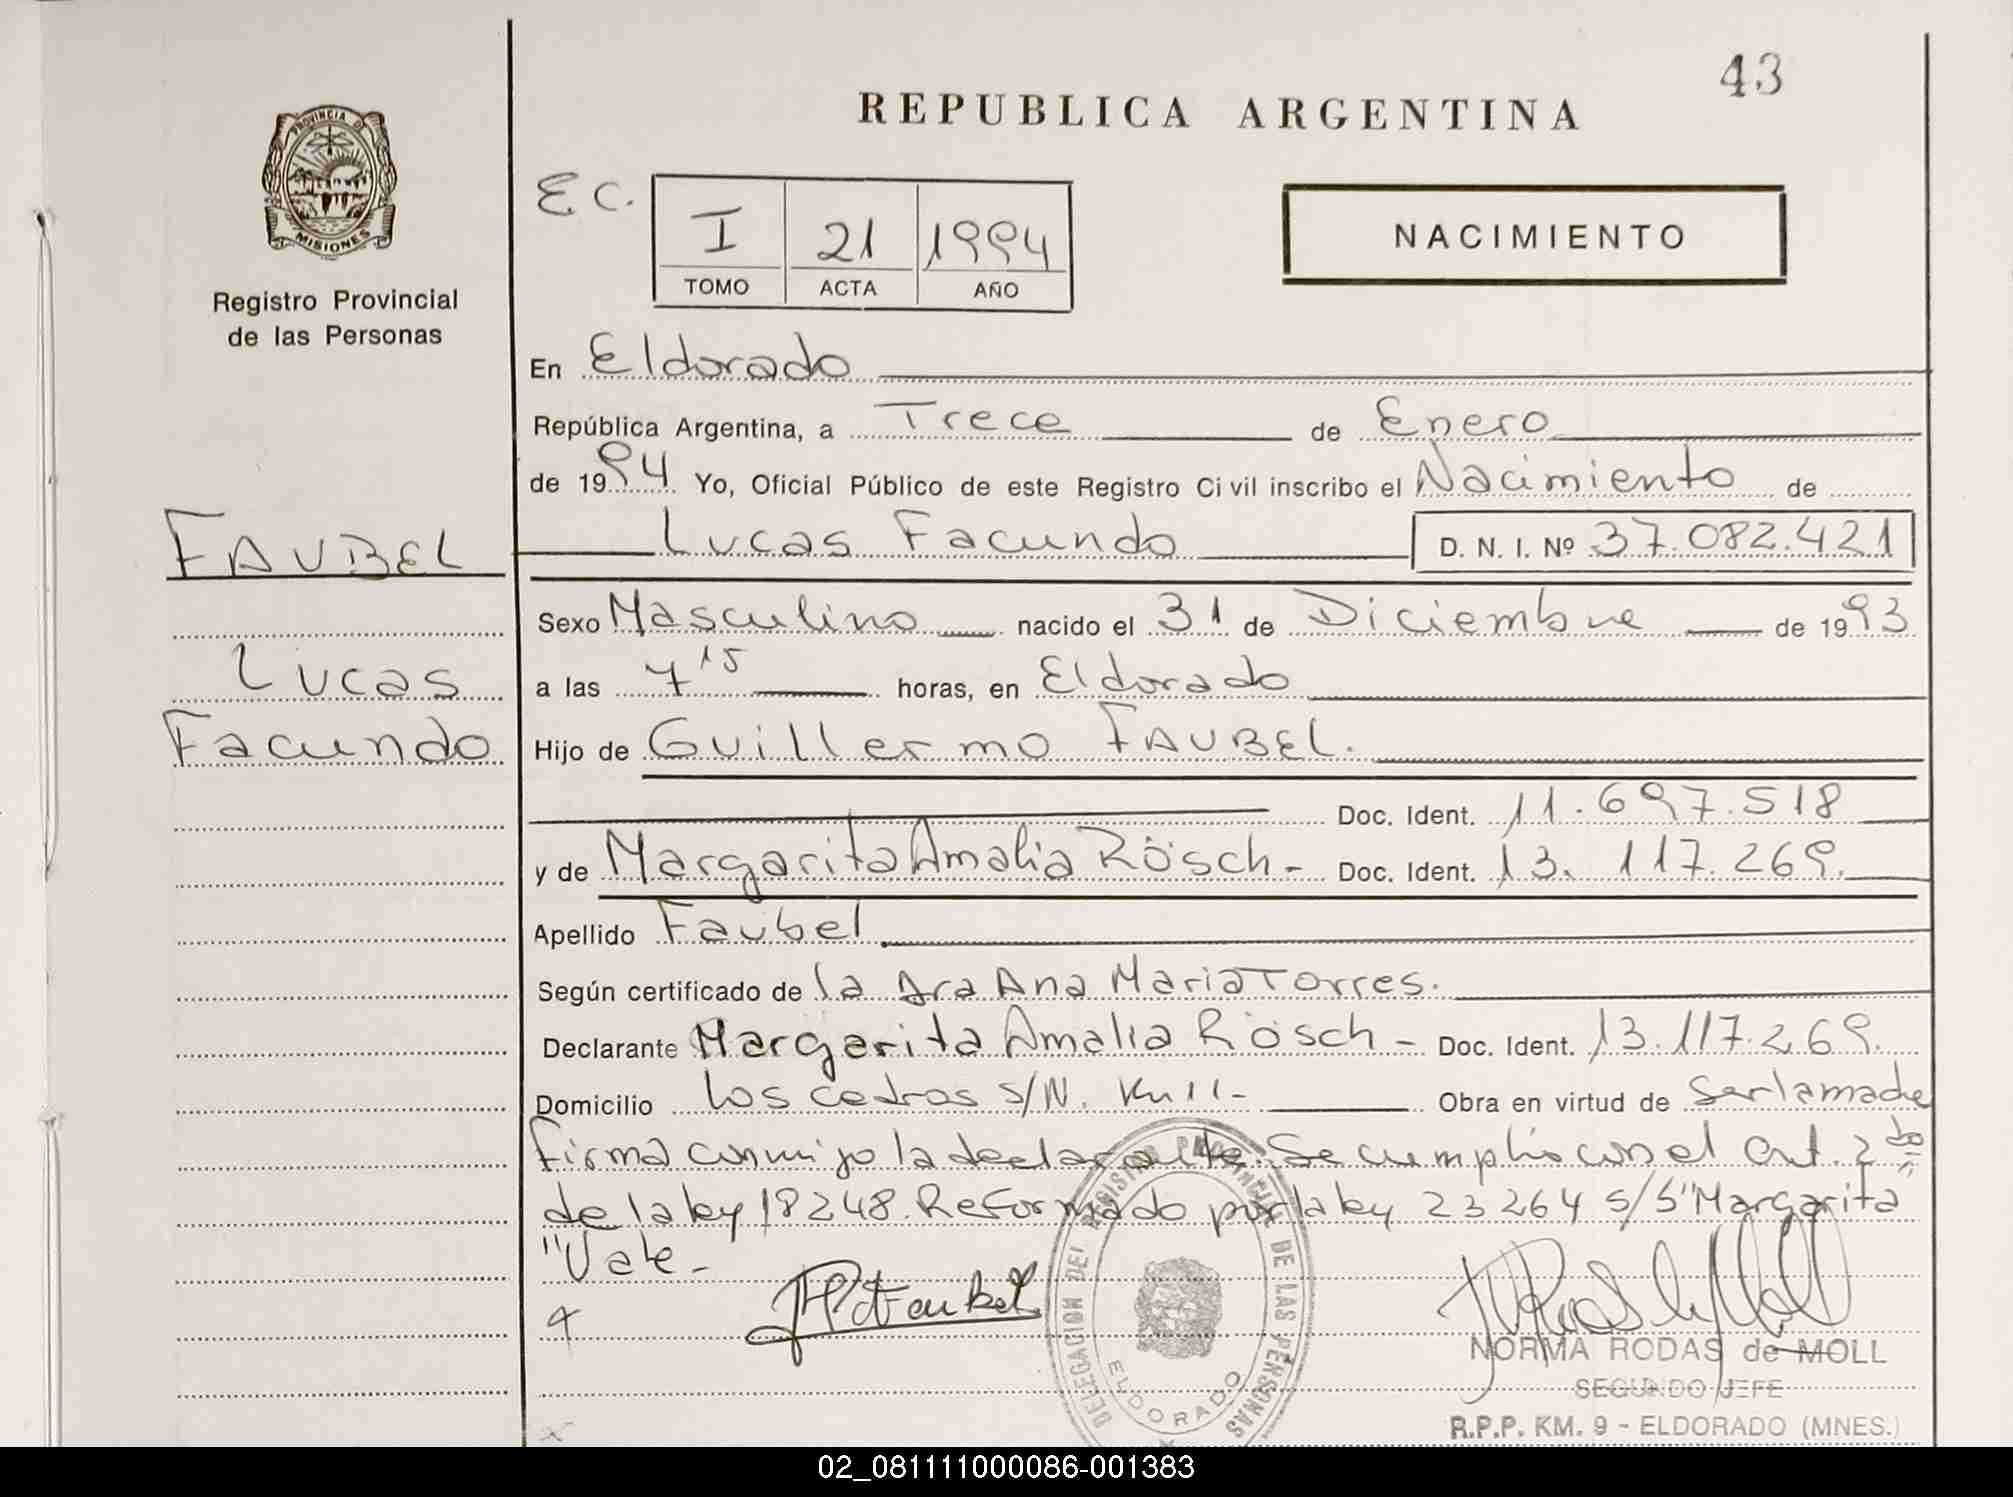 43
REPUBLICA ARGENTINA
PROVINCIA DE
MISIONES
Registro Provincial
de las Personas
E.C.
I 21 1994
TOMO ACTA AÑO
NACIMIENTO
En Eldorado
República Argentina, a Trece de Enero
de 1994 Yo, Oficial Público de este Registro Civil inscribo el Nacimiento de
FAUBEL
Lucas Facundo D. N. I. Nº 37.082.421
Sexo Masculino nacido el 31 de Diciembre de 1993
Lucas
a las 7 15 horas, en Eldorado
Facundo
Hijo de Guillermo FAUBEL.
Doc. Ident. 11.697.518
y de Margarita Amalia Rösch - Doc. Ident. 13.117.269.
Apellido Faubel
Según certificado de la dra Ana Maria Torres.
Declarante Margarita Amalia Rösch - Doc. Ident. 13.117.269.
Domicilio los cedros s/N. Km 11 - Obra en virtud de Ser la madre
Firma conmigo la declarante. Se cumplió con el Art. 2do
de la ley 18248. Reformado por la ley 23264 s/S "Margarita"
"Vale -
NORMA RODAS de MOLL
SEGUNDO JEFE
R.P.P. KM. 9 - ELDORADO (MNES.)
DELEGACION DEL REGISTRO PROVINCIAL DE LAS PERSONAS
ELDORADO
02_081111000086-001383